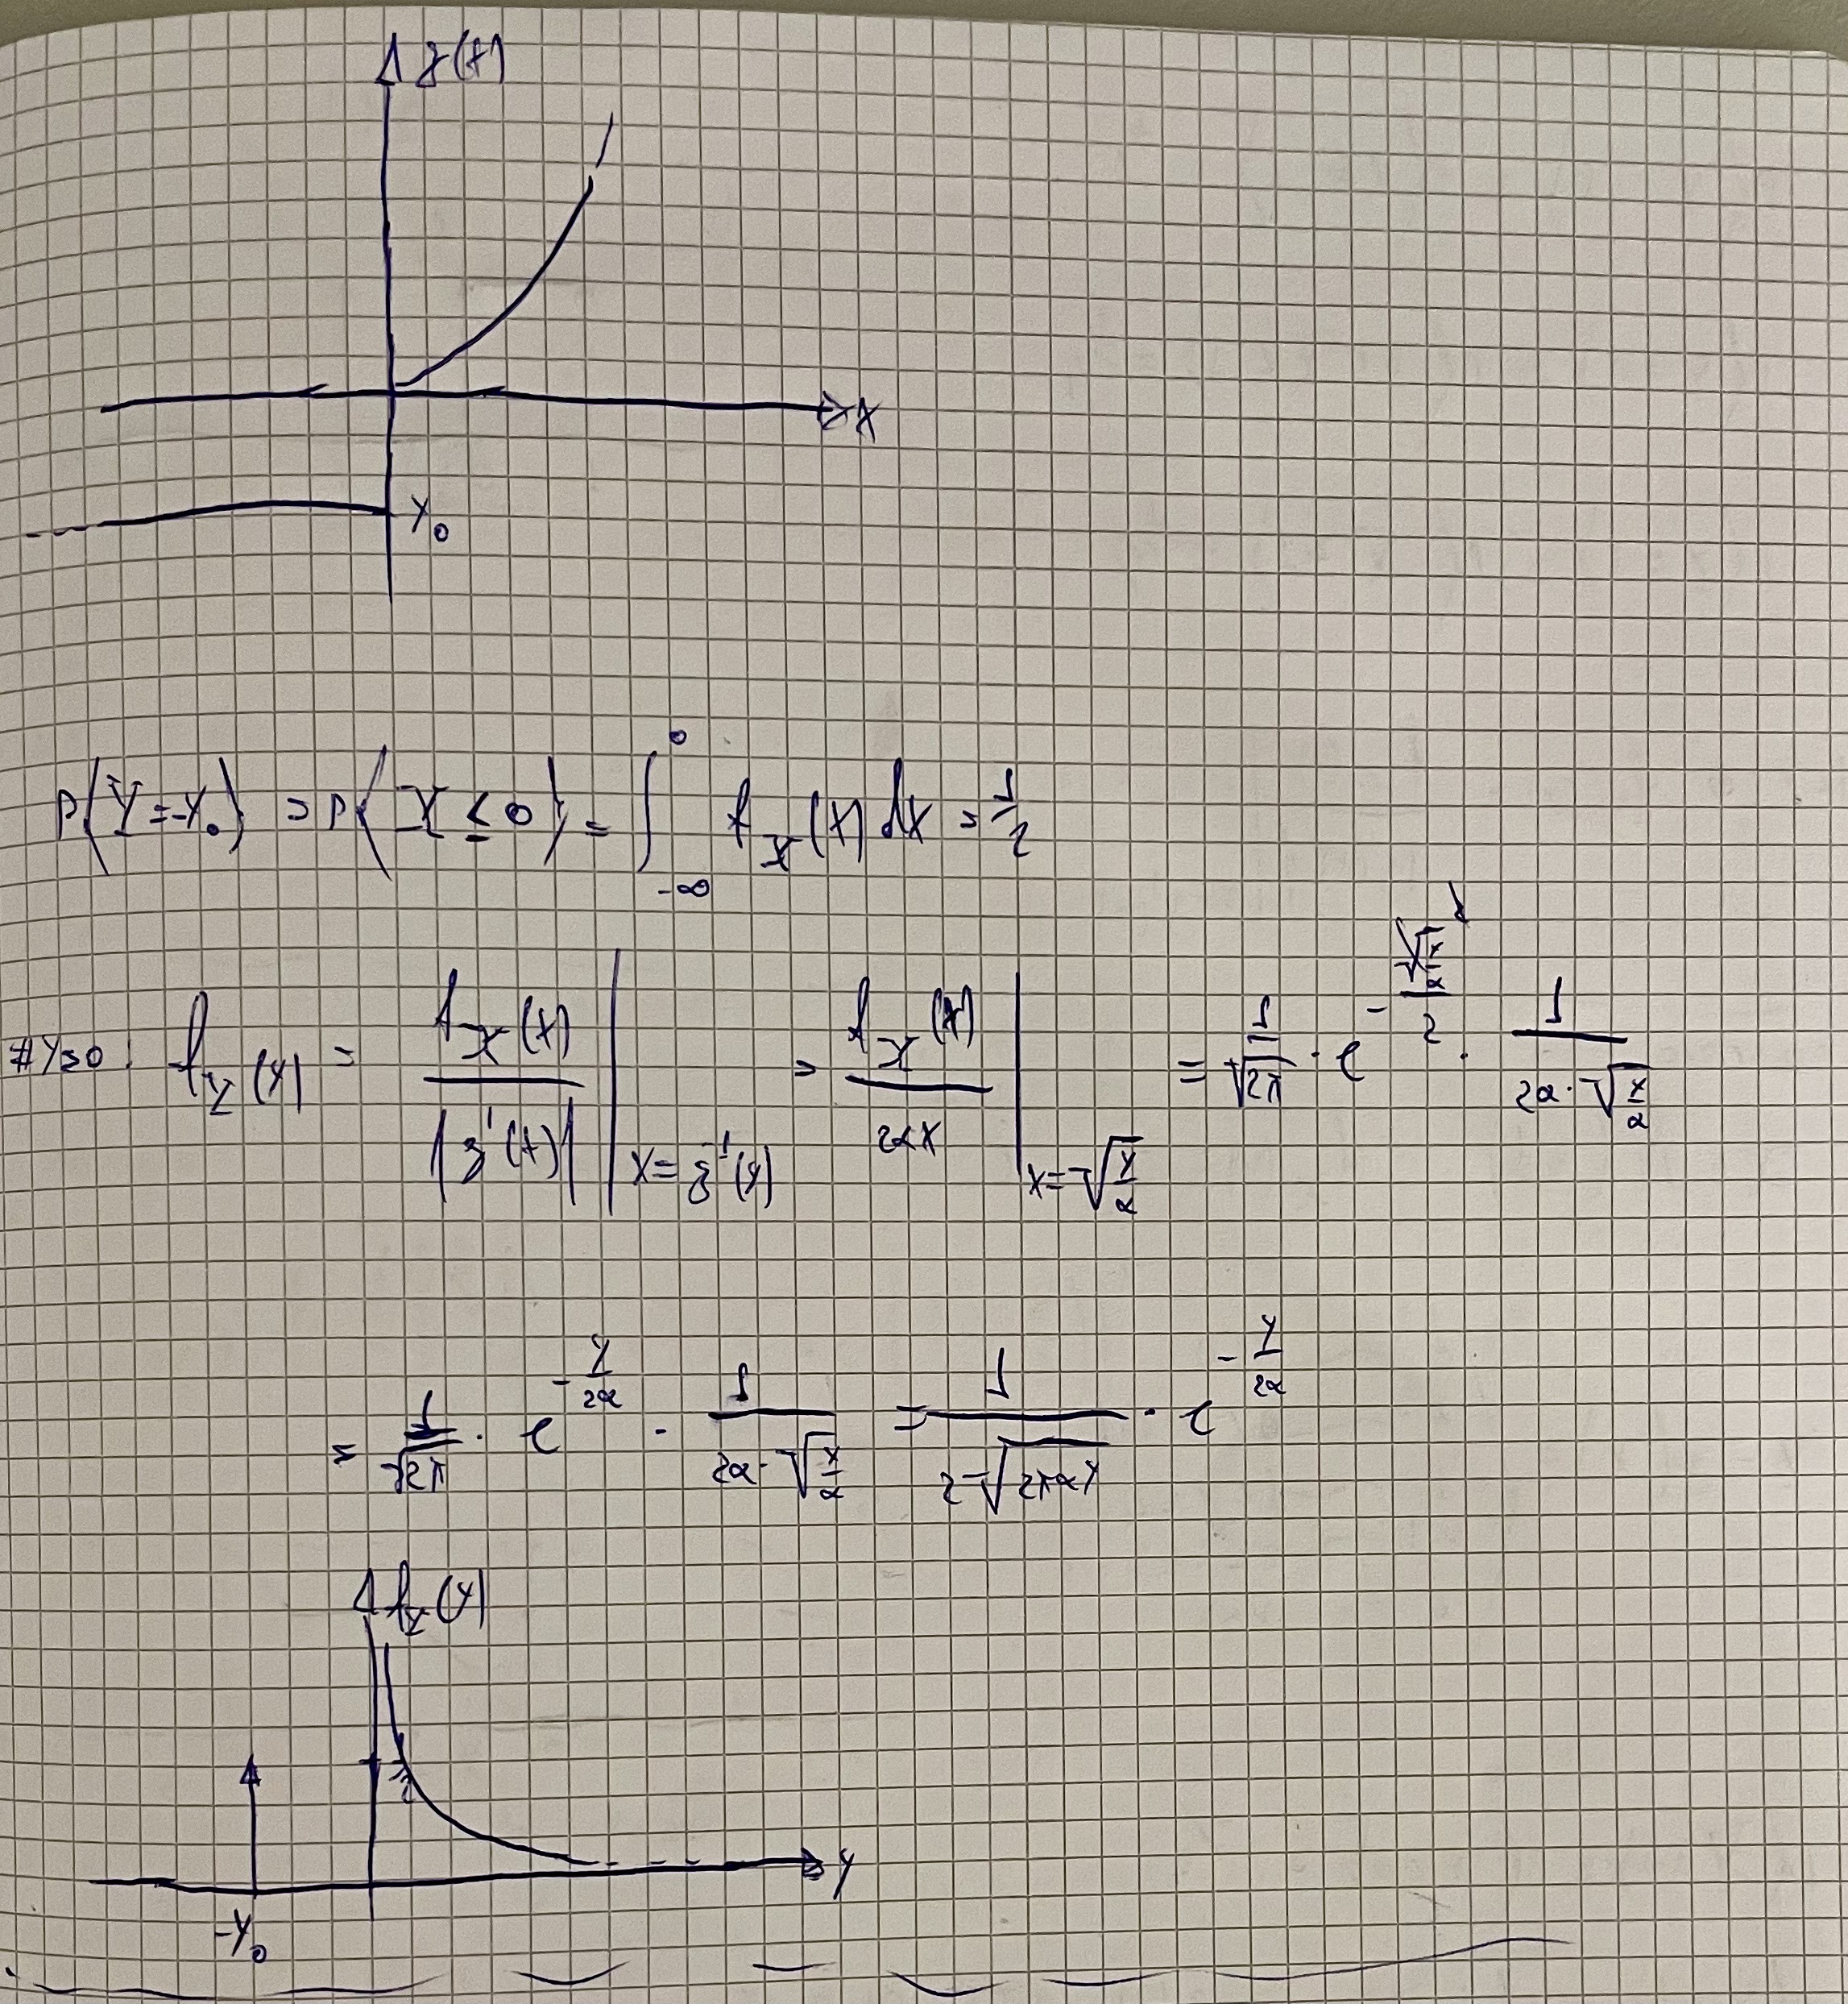 g(x)
x
y₀
P(Y=-y₀) = P(X ≤ 0) = ∫_{-∞}^{0} f_X(x) dx = 1/2
#y≥0: f_Y(y) = f_X(x) / |g'(x)| |_{x=g⁻¹(y)} = f_X(x) / 2αx |_{x=√(y/α)} = 1/√(2π) · e^{-(√(y/α))²/2} · 1/(2α·√(y/α))
= 1/√(2π) · e^{-y/2α} · 1/(2α·√(y/α)) = 1/(2√(2παy)) · e^{-y/2α}
f_Y(y)
1/2
y
-y₀